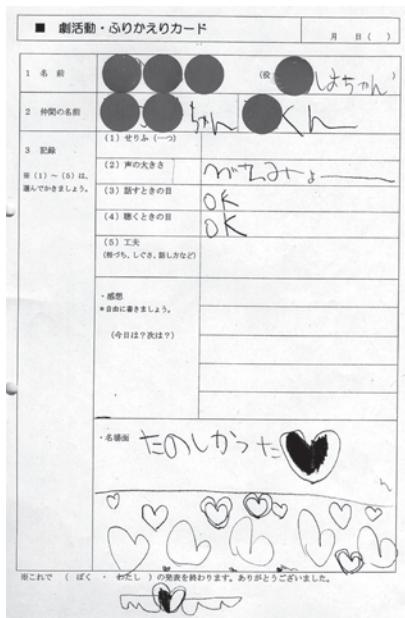 ■ 劇活動・ふりかえりカード
月 日( )
1 名 前
(役 しおちゃん )
2 仲間の名前
ちゃん くん
3 記録
※(1)~(5)は、
選んでかきましょう。
(1)せりふ(一つ)
(2)声の大きさ
(3)話すときの目
OK
(4)聴くときの目
OK
(5)工夫
(相づち、しぐさ、話し方など)
・感想
*自由に書きましょう。
(今日は?次は?)
・名場面
たのしかった
※これで ( ぼく ・ わたし )の発表を終わります。ありがとうございました。